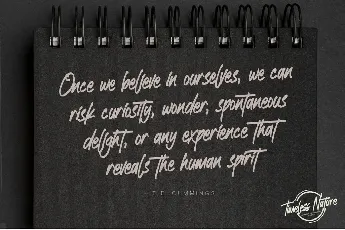 Once we believe in ourselves, we can
risk curiosity, wonder, spontaneous
delight, or any experience that
reveals the human spirit
E.E. CUMMINGS
Timeless Nature